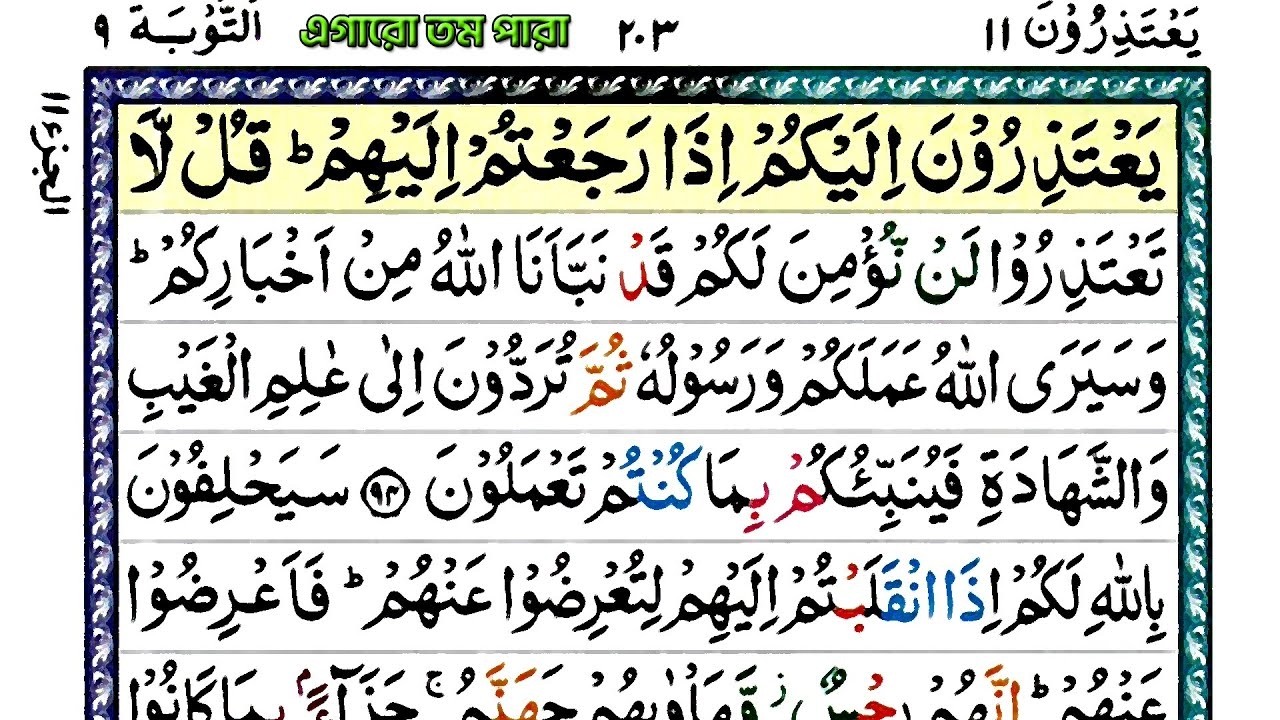 يَعْتَذِرُوْنَ ١١ ٢٠٣ এগারো তম পারা اَلتَّوْبَة ٩
الجزء ١١
يَعْتَذِرُوْنَ اِلَيْكُمْ اِذَا رَجَعْتُمْ اِلَيْهِمْ ؕ قُلْ لَّا
تَعْتَذِرُوْا لَنْ نُّؤْمِنَ لَكُمْ قَدْ نَبَّاَنَا اللّٰهُ مِنْ اَخْبَارِكُمْ ؕ
وَسَيَرَى اللّٰهُ عَمَلَكُمْ وَرَسُوْلُهٗ ثُمَّ تُرَدُّوْنَ اِلٰى عٰلِمِ الْغَيْبِ
وَالشَّهَادَةِ فَيُنَبِّئُكُمْ بِمَا كُنْتُمْ تَعْمَلُوْنَ ﴿۹۴﴾ سَيَحْلِفُوْنَ
بِاللّٰهِ لَكُمْ اِذَا انْقَلَبْتُمْ اِلَيْهِمْ لِتُعْرِضُوْا عَنْهُمْ ؕ فَاَعْرِضُوْا
عَنْهُمْ ؕ اِنَّهُمْ رِجْسٌ ؗ وَّمَاْوٰىهُمْ جَهَنَّمُ ۚ جَزَآءًۢ بِمَا كَانُوْا